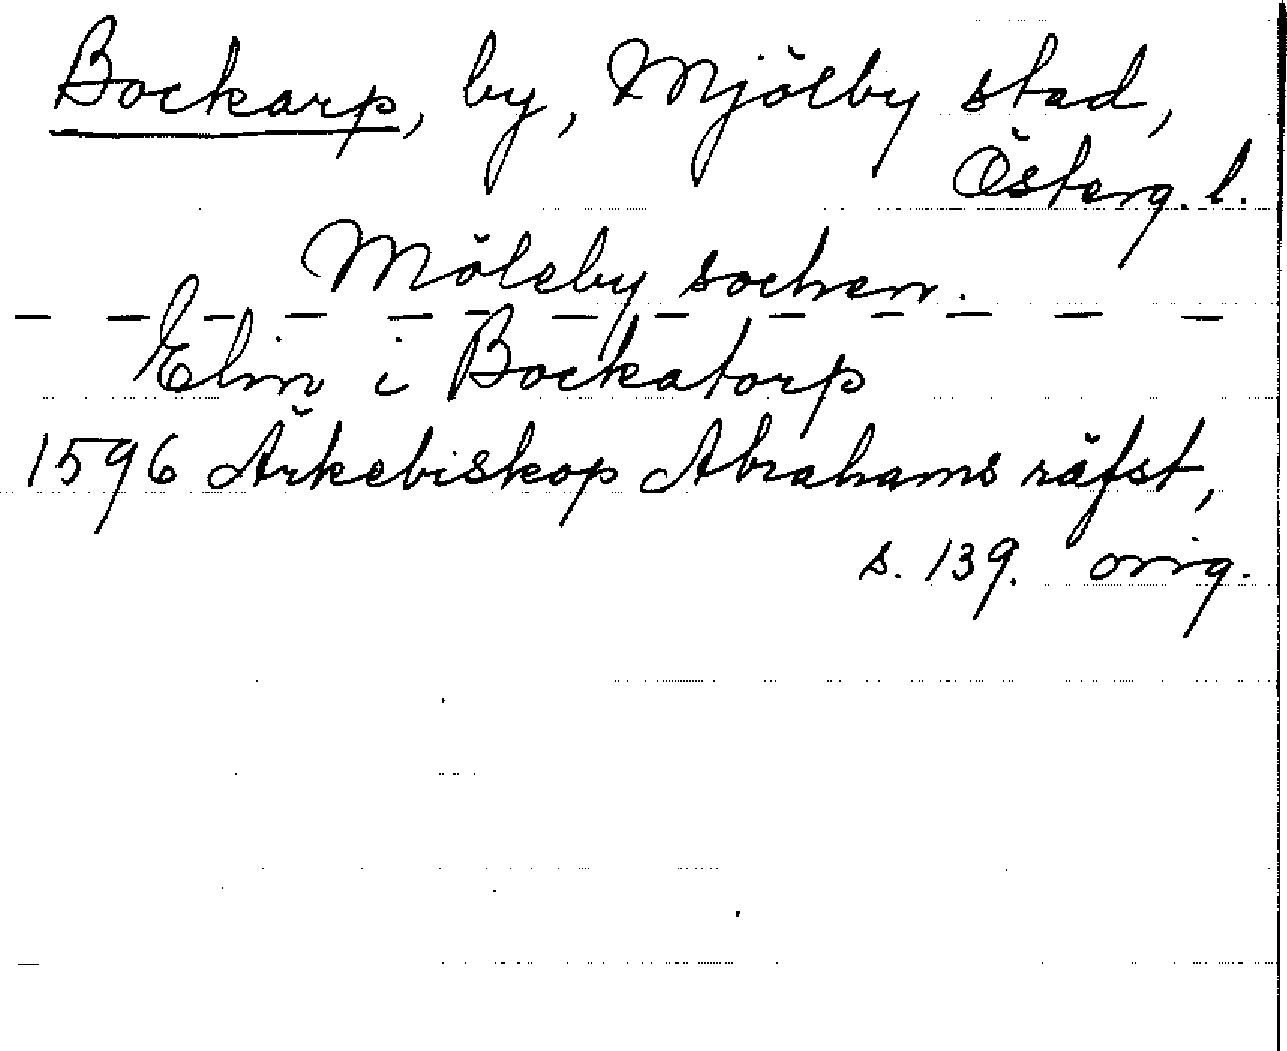 Bockarp, by, Mjölby stad,
Österg. l.
Möleby sochen.
Elin i Bockatorp
1596 Ärkebiskop Abrahams räfst,
s. 139. orig.